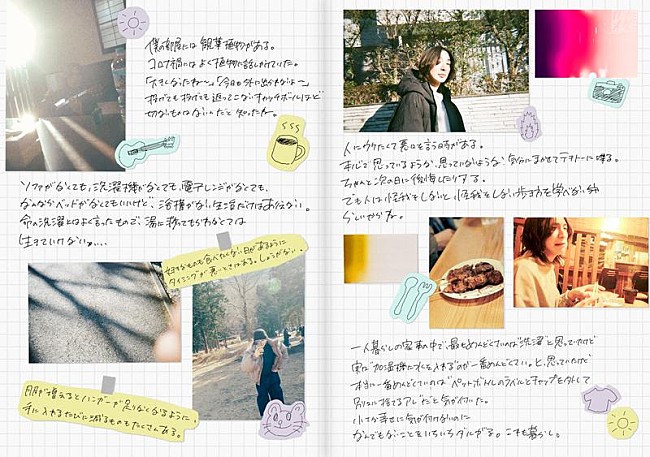 僕の部屋には観葉植物がある。
コロナ禍にはよく植物に話しかけていた。
「大きくなったね〜」「今日も外に出られないよ〜」
投げても投げても返ってこないキャッチボールほど
切ないものはないんだと知ったね。
ソファがなくても、洗濯機がなくても、電子レンジがなくても、
なんならベッドがなくてもいいけど、浴槽がない生活だけはありえない。
命の洗濯とはよく言ったもので、湯に救ってもらわなくては
生きていけない
好きなものも食べたくない日があるように
タイミングが悪っとさけれる。しょうがない。
服が増えるとハンガーが足りなくなるように、
手に入れるたびに減るものもたくさんある。
人にウケたくて悪口を言う時がある。
本心で思っているような、思っていないような気分にまかせてテキトーに喋る。
ちゃんと次の日に後悔したりする。
でも人は怪我をしないと、怪我をしない歩き方を学べない
らしいからね。
一人暮らしの家事の中で、最もめんどくさいのは"洗濯"と思っていたけど
実は"加湿機に水を入れる"のが一番めんどくさい。と、思っていたけど
本当に一番めんどくさいのは"ペットボトルのラベルとキャップを外して
別々に捨てるアレ"だと気が付いた。
小さな幸せに気が付けないのに
なんでもないことをいちいちダルがる。これも暮らし。